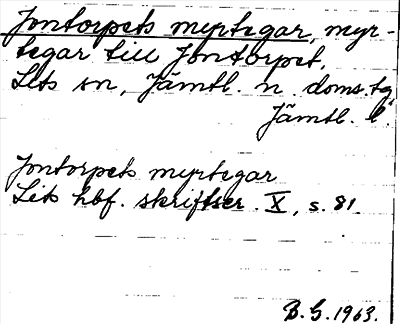 Jontorpets myrtegar, myr-
tegar till Jontorpet,
Lits sn, Jämtl. n. doms.tg
Jämtl. l.
Jontorpets myrtegar
Lits hbf. skriftser. X, s. 81.
B.G. 1963.